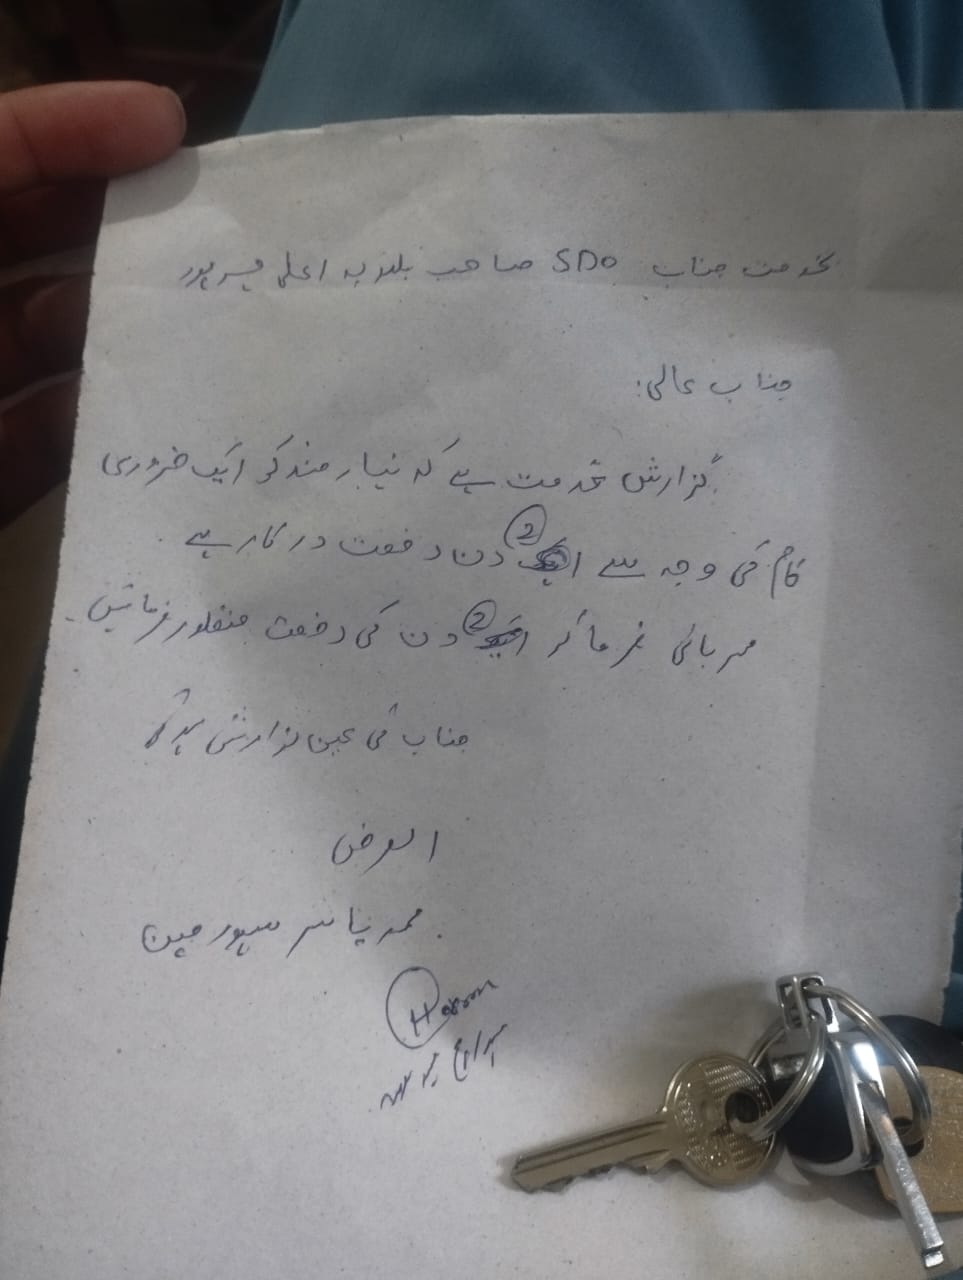 بخدمت جناب SDO صاحب بلدیہ اعلی میرپور
جناب عالی:
گزارش خدمت ہے کہ نیاز مند کو ایک ضروری
کام کی وجہ سے 2 دن رخصت درکار ہے
مہربانی فرما کر 2 دن کی رخصت منظور فرمائیں۔
جناب کی عین نوازش ہو گی
العرض
محمد یاسر سیور مین